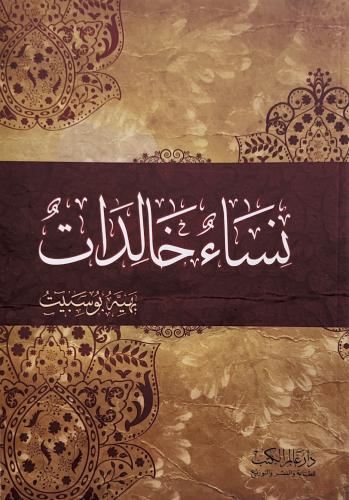 نِسَاءٌ خَالِدَاتٌ
بهية بوسبيت
دار عالم الكتب
للطباعة والنشر والتوزيع